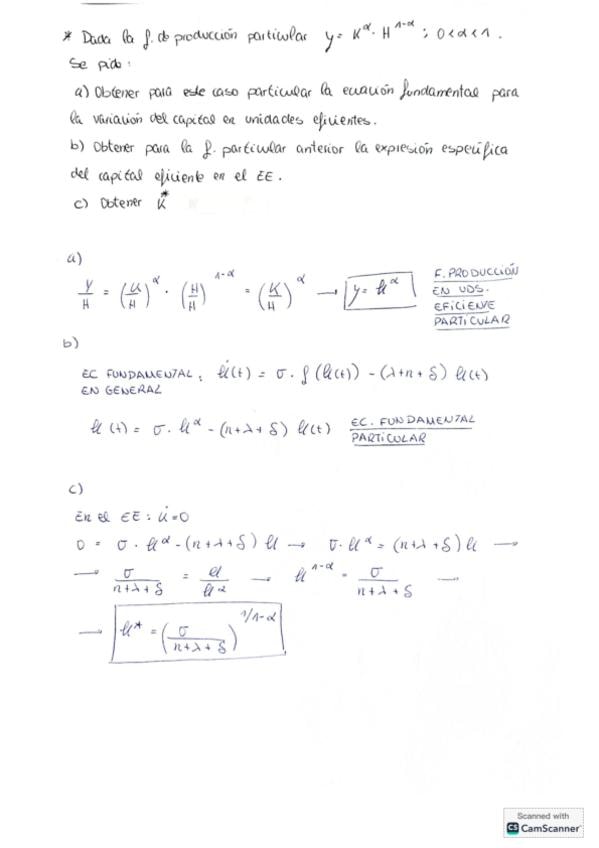 * Dada la f. de producción particular y = K^α · H^1-α ; 0<α<1.
Se pide:
a) Obtener para este caso particular la ecuación fundamental para
la variación del capital en unidades eficientes.
b) Obtener para la f. particular anterior la expresión específica
del capital eficiente en el EE.
c) Obtener K*
a)
Y/H = (K/H)^α · (H/H)^1-α = (K/H)^α → y = k^α
F. PRODUCCIÓN
EN UDS.
EFICIENTE
PARTICULAR
b)
EC FUNDAMENTAL: k̇(t) = σ · f(k(t)) - (λ+n+δ) k(t)
EN GENERAL
k(t) = σ · k^α - (n+λ+δ) k(t) EC. FUNDAMENTAL
PARTICULAR
c)
En el EE: k̇=0
0 = σ · k^α - (n+λ+δ) k → σ · k^α = (n+λ+δ) k →
→ σ/(n+λ+δ) = k/k^α → k^1-α = σ/(n+λ+δ) →
→ k* = (σ/(n+λ+δ))^1/1-α
Scanned with
CS CamScanner